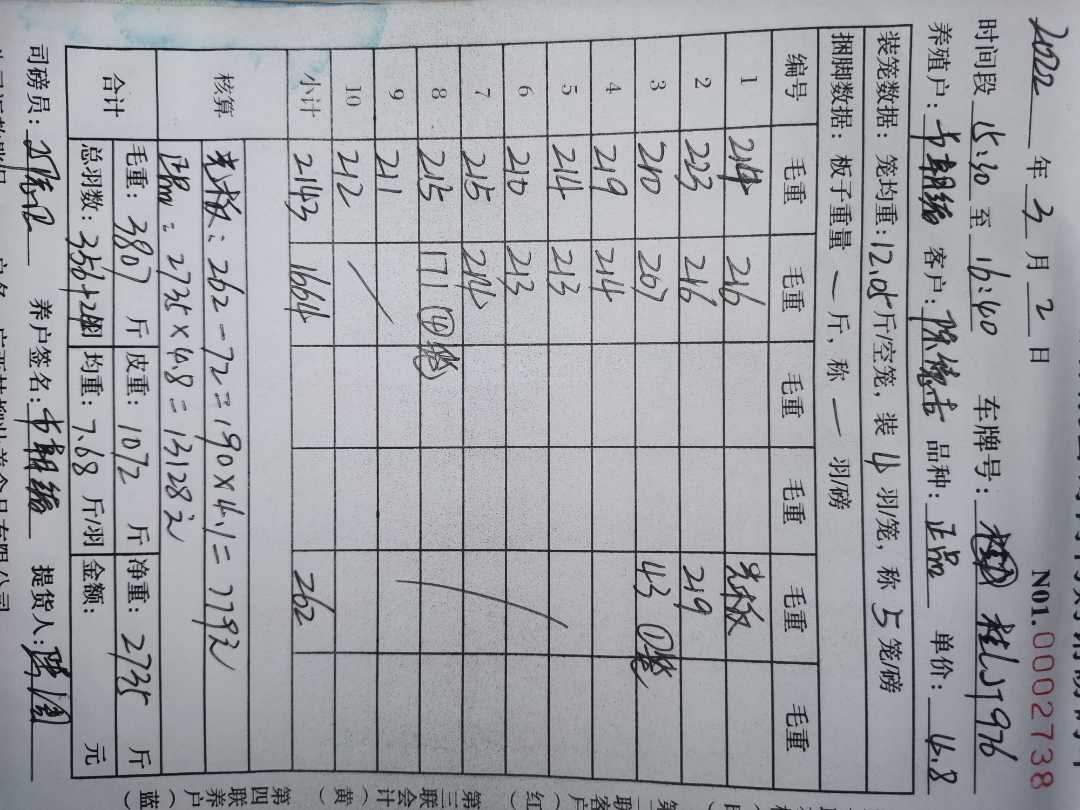 N01.0002738
2022 年 3 月 2 日
时间段 15:30 至 16:40 车牌号: 桂JJT976
养殖户: 客户: 陈德吉 品种: 正品 单价: 4.8
装笼数据: 笼均重: 12.05 斤/空笼, 装 4 羽/笼, 称 5 笼/磅
捆脚数据: 板子重量 一 斤, 称 一 羽/磅
编号 毛重 毛重 毛重 毛重 毛重 毛重
1 214 216 光板
2 223 216 219
3 210 207 43 ①笼
4 219 214
5 214 213
6 210 213
7 215 214
8 215 171 ④笼
9 211
10 212
小计 2143 1664 262
核算
光板: 262-72=190×4.1=779元
正品: 2735×4.8=13128元
合计 毛重: 3807 斤 皮重: 1072 斤 净重: 2735 斤
总羽数: 356+2 均重: 7.68 斤/羽 金额: 元
司磅员: 养户签名: 提货人:
第三联会计(黄)
第四联养户(蓝)